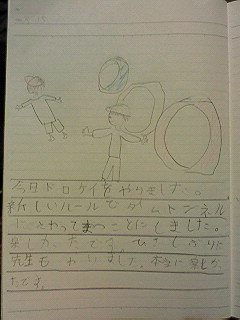 今日ドロケイをやりました。
新しいルールでタイムトンネル
にさわってまつことにしました。
楽しかったです。ひさしぶりに
先生もやいました。本当に楽しかっ
たです。